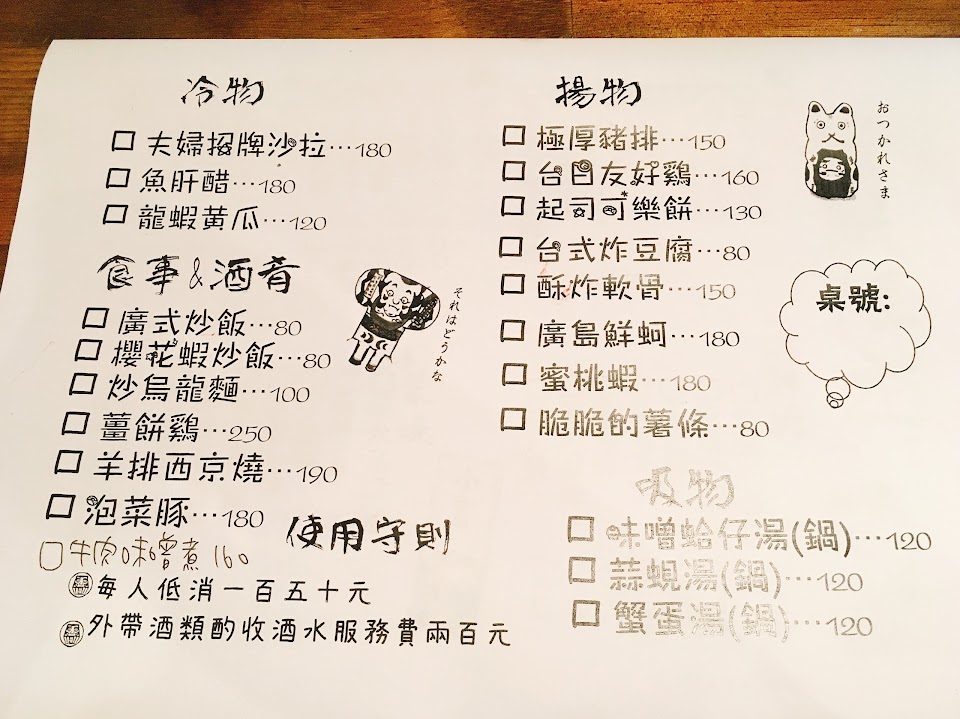 冷物
夫婦招牌沙拉…180
魚肝醋…180
龍蝦黃瓜…120
食事&酒肴
廣式炒飯…80
櫻花蝦炒飯…80
炒烏龍麵…100
薑餅鷄…250
羊排西京燒…190
泡菜豚…180
牛肉味噌煮 160
それはどうかな
揚物
極厚豬排…150
台日友好鷄…160
起司可樂餅…130
台式炸豆腐…80
酥炸軟骨…150
廣島鮮蚵…180
蜜桃蝦…180
脆脆的薯條…80
おつかれさま
桌號:
吸物
味噌蛤仔湯(鍋)…120
蒜蜆湯(鍋)…120
蟹蛋湯(鍋)…120
使用守則
每人低消一百五十元
外帶酒類酌收酒水服務費兩百元